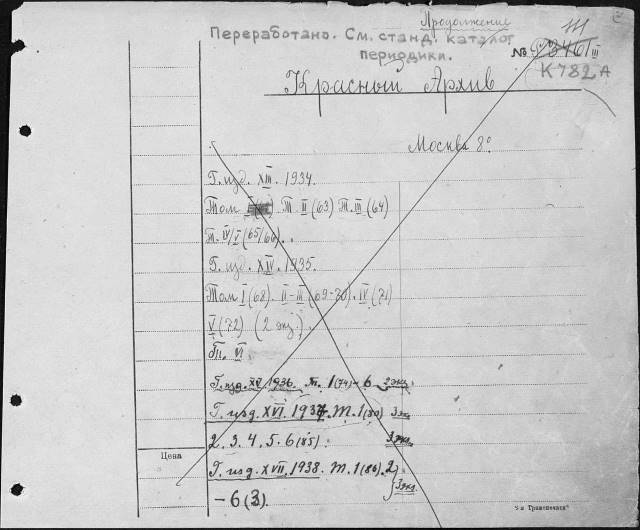 Продолжение
Переработано. См. станд. каталог
периодики.
№ P3461 III
K782A
Красный Архив
Москва 8º
Г. изд. XIII. 1934.
Том I Т. II (63) Т. III (64)
Т. IV/V (65/66).
Г. изд. XIV. 1935.
Том I (68). II-III (69-70). IV (71)
V (72) (2 экз.).
VI.
Г. изд. XV. 1936. Т. 1 (74) - 6 2 экз.
Г. изд. XVI. 1937. Т. 1 (80) 3 экз.
2. 3. 4. 5. 6 (85). 3 экз.
Г. изд. XVII. 1938. Т. 1 (86). 2
3 экз.
- 6 (3).
Цена